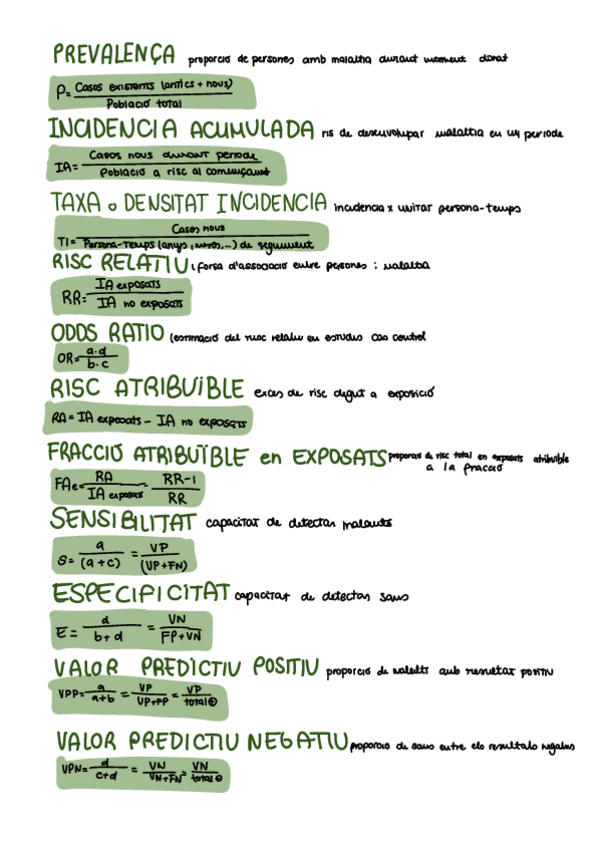 PREVALENÇA proporció de persones amb malaltia durant moment donat
P= Casos existents (antics + nous)
Població total
INCIDENCIA ACUMULADA ris de desenvolupar malaltia en un periode
IA= Casos nous durant periode
Població a risc al començament
TAXA o DENSITAT INCIDENCIA incidencia x unitat persona-temps
TI= Casos nous
Persona-Temps (anys, mesos,...) de seguiment
RISC RELATIU força d'associacio entre persones i malaltia
RR= IA exposats
IA no exposats
ODDS RATIO (estimació del risc relatiu en estudis cas control
OR= a·d
b·c
RISC ATRIBUIBLE exces de risc degut a exposició
RA= IA exposats - IA no exposats
FRACCIO ATRIBUÏBLE en EXPOSATS proporció de risc total en exposats atribuible
a la fracció
FAe= RA = RR-1
IA exposats RR
SENSIBILITAT capacitat de detectar malalts
S= a = VP
(a+c) (VP+FN)
ESPECIFICITAT capacitat de detectar sans
E= d = VN
b+d FP+VN
VALOR PREDICTIU POSITIU proporcio de malalts amb resultat positiu
VPP= a = VP = VP
a+b VP+FP total ⊕
VALOR PREDICTIU NEGATIU proporcio de sans entre els resultats negatius
VPN= d = VN = VN
c+d VN+FN total ⊖